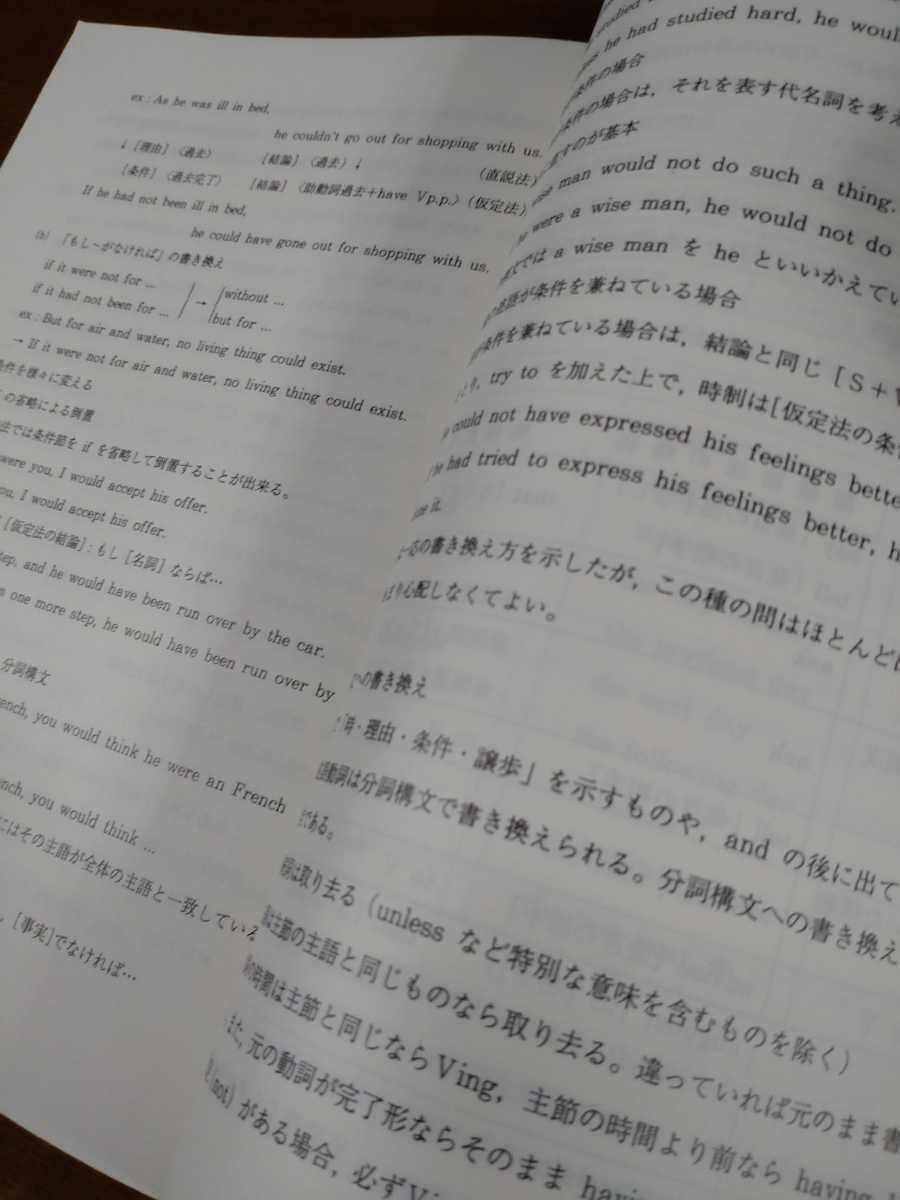 ex : As he was ill in bed,
he couldn't go out for shopping with us.
↓［理由］〈過去〉 ［結論］〈過去〉↓ （直説法）
［条件］〈過去完了〉 ［結論］〈助動詞過去+have Vp.p.〉（仮定法）
If he had not been ill in bed,
he could have gone out for shopping with us.
(b) 「もし～がなければ」の書き換え
if it were not for ...
if it had not been for ...
→
without ...
but for ...
ex : But for air and water, no living thing could exist.
→ If it were not for air and water, no living thing could exist.
条件を様々に変える
の省略による倒置
法では条件節を if を省略して倒置することが出来る。
were you, I would accept his offer.
you, I would accept his offer.
［仮定法の結論］: もし［名詞］ならば…
step, and he would have been run over by the car.
one more step, he would have been run over by
分詞構文
rench, you would think he were an French
ench, you would think ...
にはその主語が全体の主語と一致している
［事実］でなければ…
studied
he had studied hard, he woul
条件の場合
条件の場合は，それを表す代名詞を考え
すのが基本
wise man would not do such a thing.
he were a wise man, he would not do
文では a wise man を he といいかえてい
の主語が条件を兼ねている場合
条件を兼ねている場合は，結論と同じ［S＋V
とり，try to を加えた上で，時制は[仮定法の条
could not have expressed his feelings bette
he had tried to express his feelings better, h
ne it.
一応の書き換え方を示したが，この種の問はほとんど
まり心配しなくてよい。
への書き換え
「時・理由・条件・譲歩」を示すものや，and の後に出て
動詞は分詞構文で書き換えられる。分詞構文への書き換え
である。
詞は取り去る（unless など特別な意味を含むものを除く）
主節の主語と同じものなら取り去る。違っていれば元のまま書
の時間は主節と同じなら Ving，主節の時間より前なら having
また，元の動詞が完了形ならそのまま having
(not) がある場合，必ず